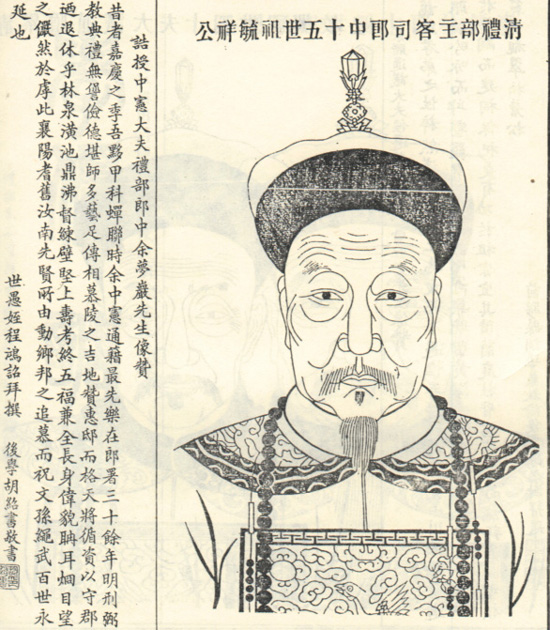 清禮部主客司郎中十五世祖毓祥公
誥授中憲大夫禮部郎中余夢巖先生像贊
昔者嘉慶之季吾黟甲科蟬聯時余中憲通籍最先樂在郎署三十餘年明刑弼
教典禮無諐儉德堪師多藝足傳相慕陵之吉地贊惠邸而格天將循資以守郡
迺退休乎林泉潢池鼎沸督練壁堅上壽考終五福兼全長身偉貌聃耳炯目望
之儼然於虖此襄陽耆舊汝南先賢所由動鄉邦之追慕而祝文孫繩武百世永
延也
世愚姪程鴻詔拜撰
後學胡點書敬書